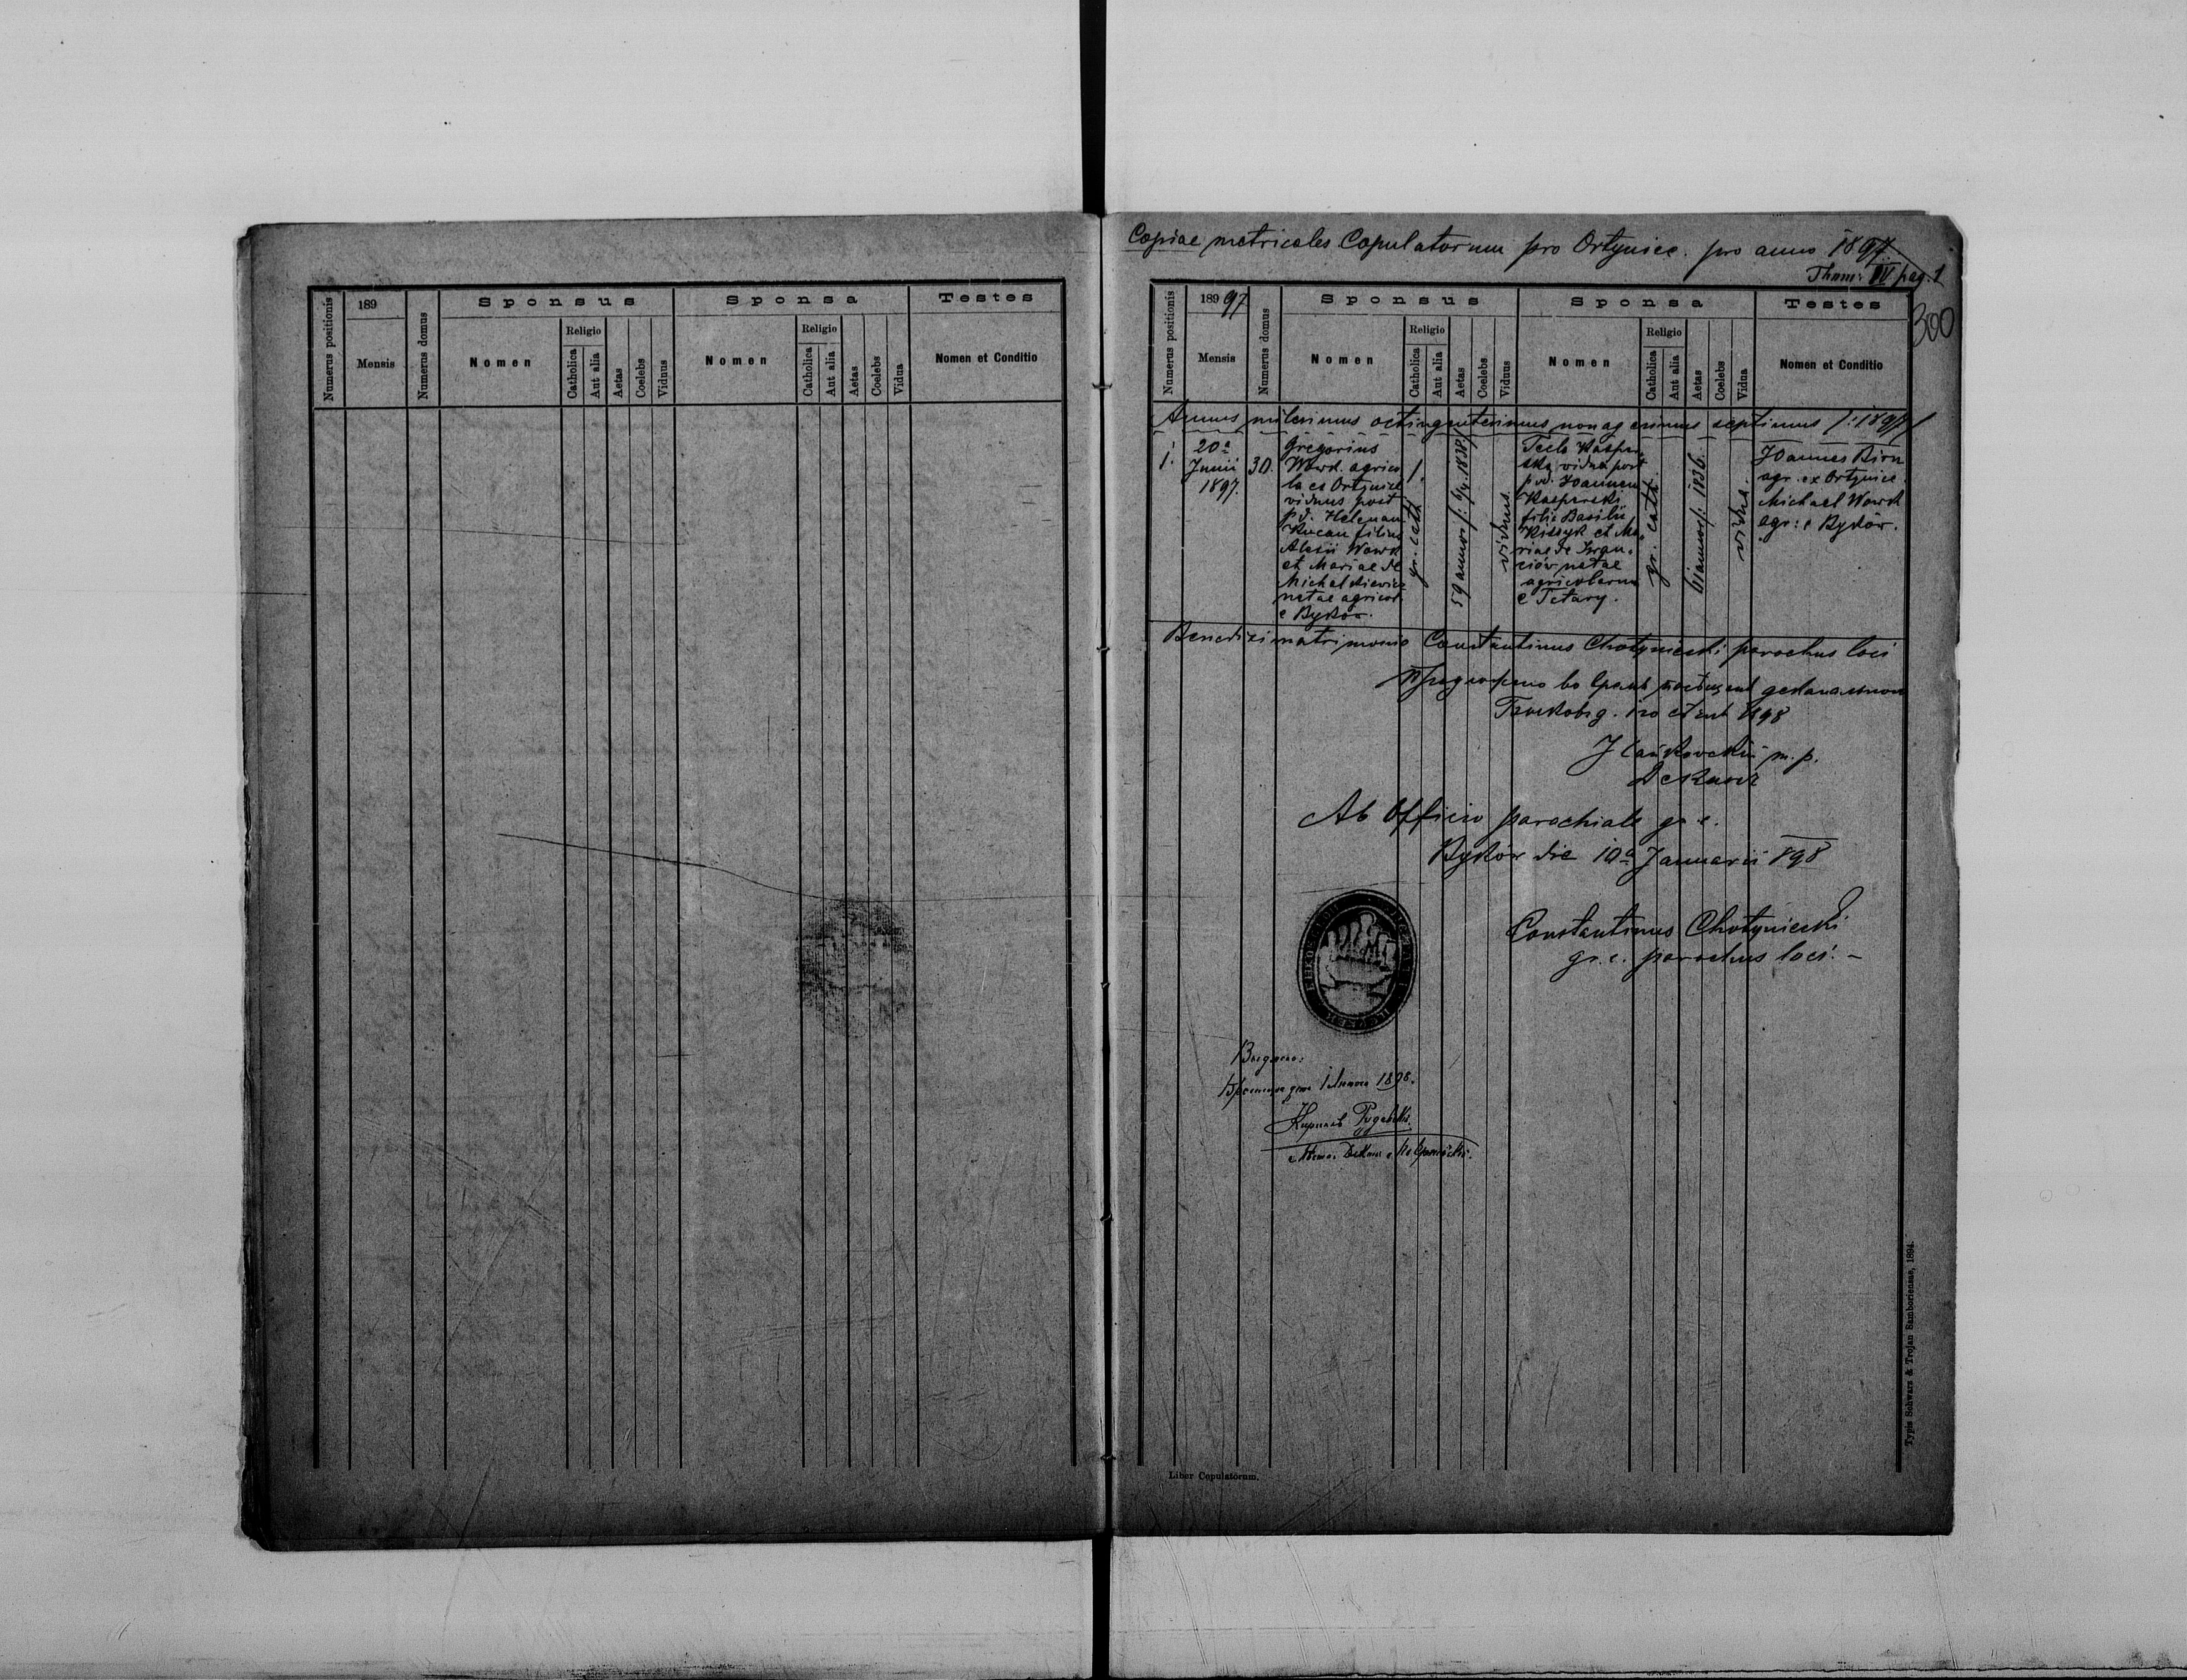 Numerus positionis
189
Mensis
Numerus domus
Sponsus
Nomen
Religio
Catholica
Aut alia
Aetas
Coelebs
Viduus
Sponsa
Nomen
Religio
Catholica
Aut alia
Aetas
Coelebs
Vidua
Testes
Nomen et Conditio
Copiae metricales Copulatorum pro Ortynice. pro anno 1897
Thom: IV pag. 1
300
Numerus positionis
189 97
Mensis
Numerus domus
Sponsus
Nomen
Religio
Catholica
Aut alia
Aetas
Coelebs
Viduus
Sponsa
Nomen
Religio
Catholica
Aut alia
Aetas
Coelebs
Vidua
Testes
Nomen et Conditio
Annus milesimus octingentesimus nonagesimus septimus /:1897/
1.
20a
Junii
1897.
30.
Gregorius
Wowk agrico
la ex Ortynice
viduus post
p.d. Helenam
Kucan filius
Alexii Wowk
et Mariae de
Michalkiewicz
natae agricol.
e Byków.
1.
gr. cath
59 annor/: 6/4 1838/
viduus.
Tecla Kasper
ska vidua post
p.d. Joannem
Kasperski
filia Basilii
Kissyk et Ma
riae de
natae
agricolarum
e Tatary.
gr. cath.
61 annor/: 1836.
vidua.
Joannes Birn
agr. ex Ortynice.
Michael Wowk
agr: e Byków.
Benedixi matrimonio Constantinus Chotyniecki parochus loci
1898
m. p.
Ab Officio parochiale gr. c.
Byków die 10a Januarii 898
Constantinus Chotyniecki
gr. c. parochus loci. -
Видѣно:
1898.
Typis Schwarz & Trojan Samboriensae, 1894.
Liber Copulatorum.